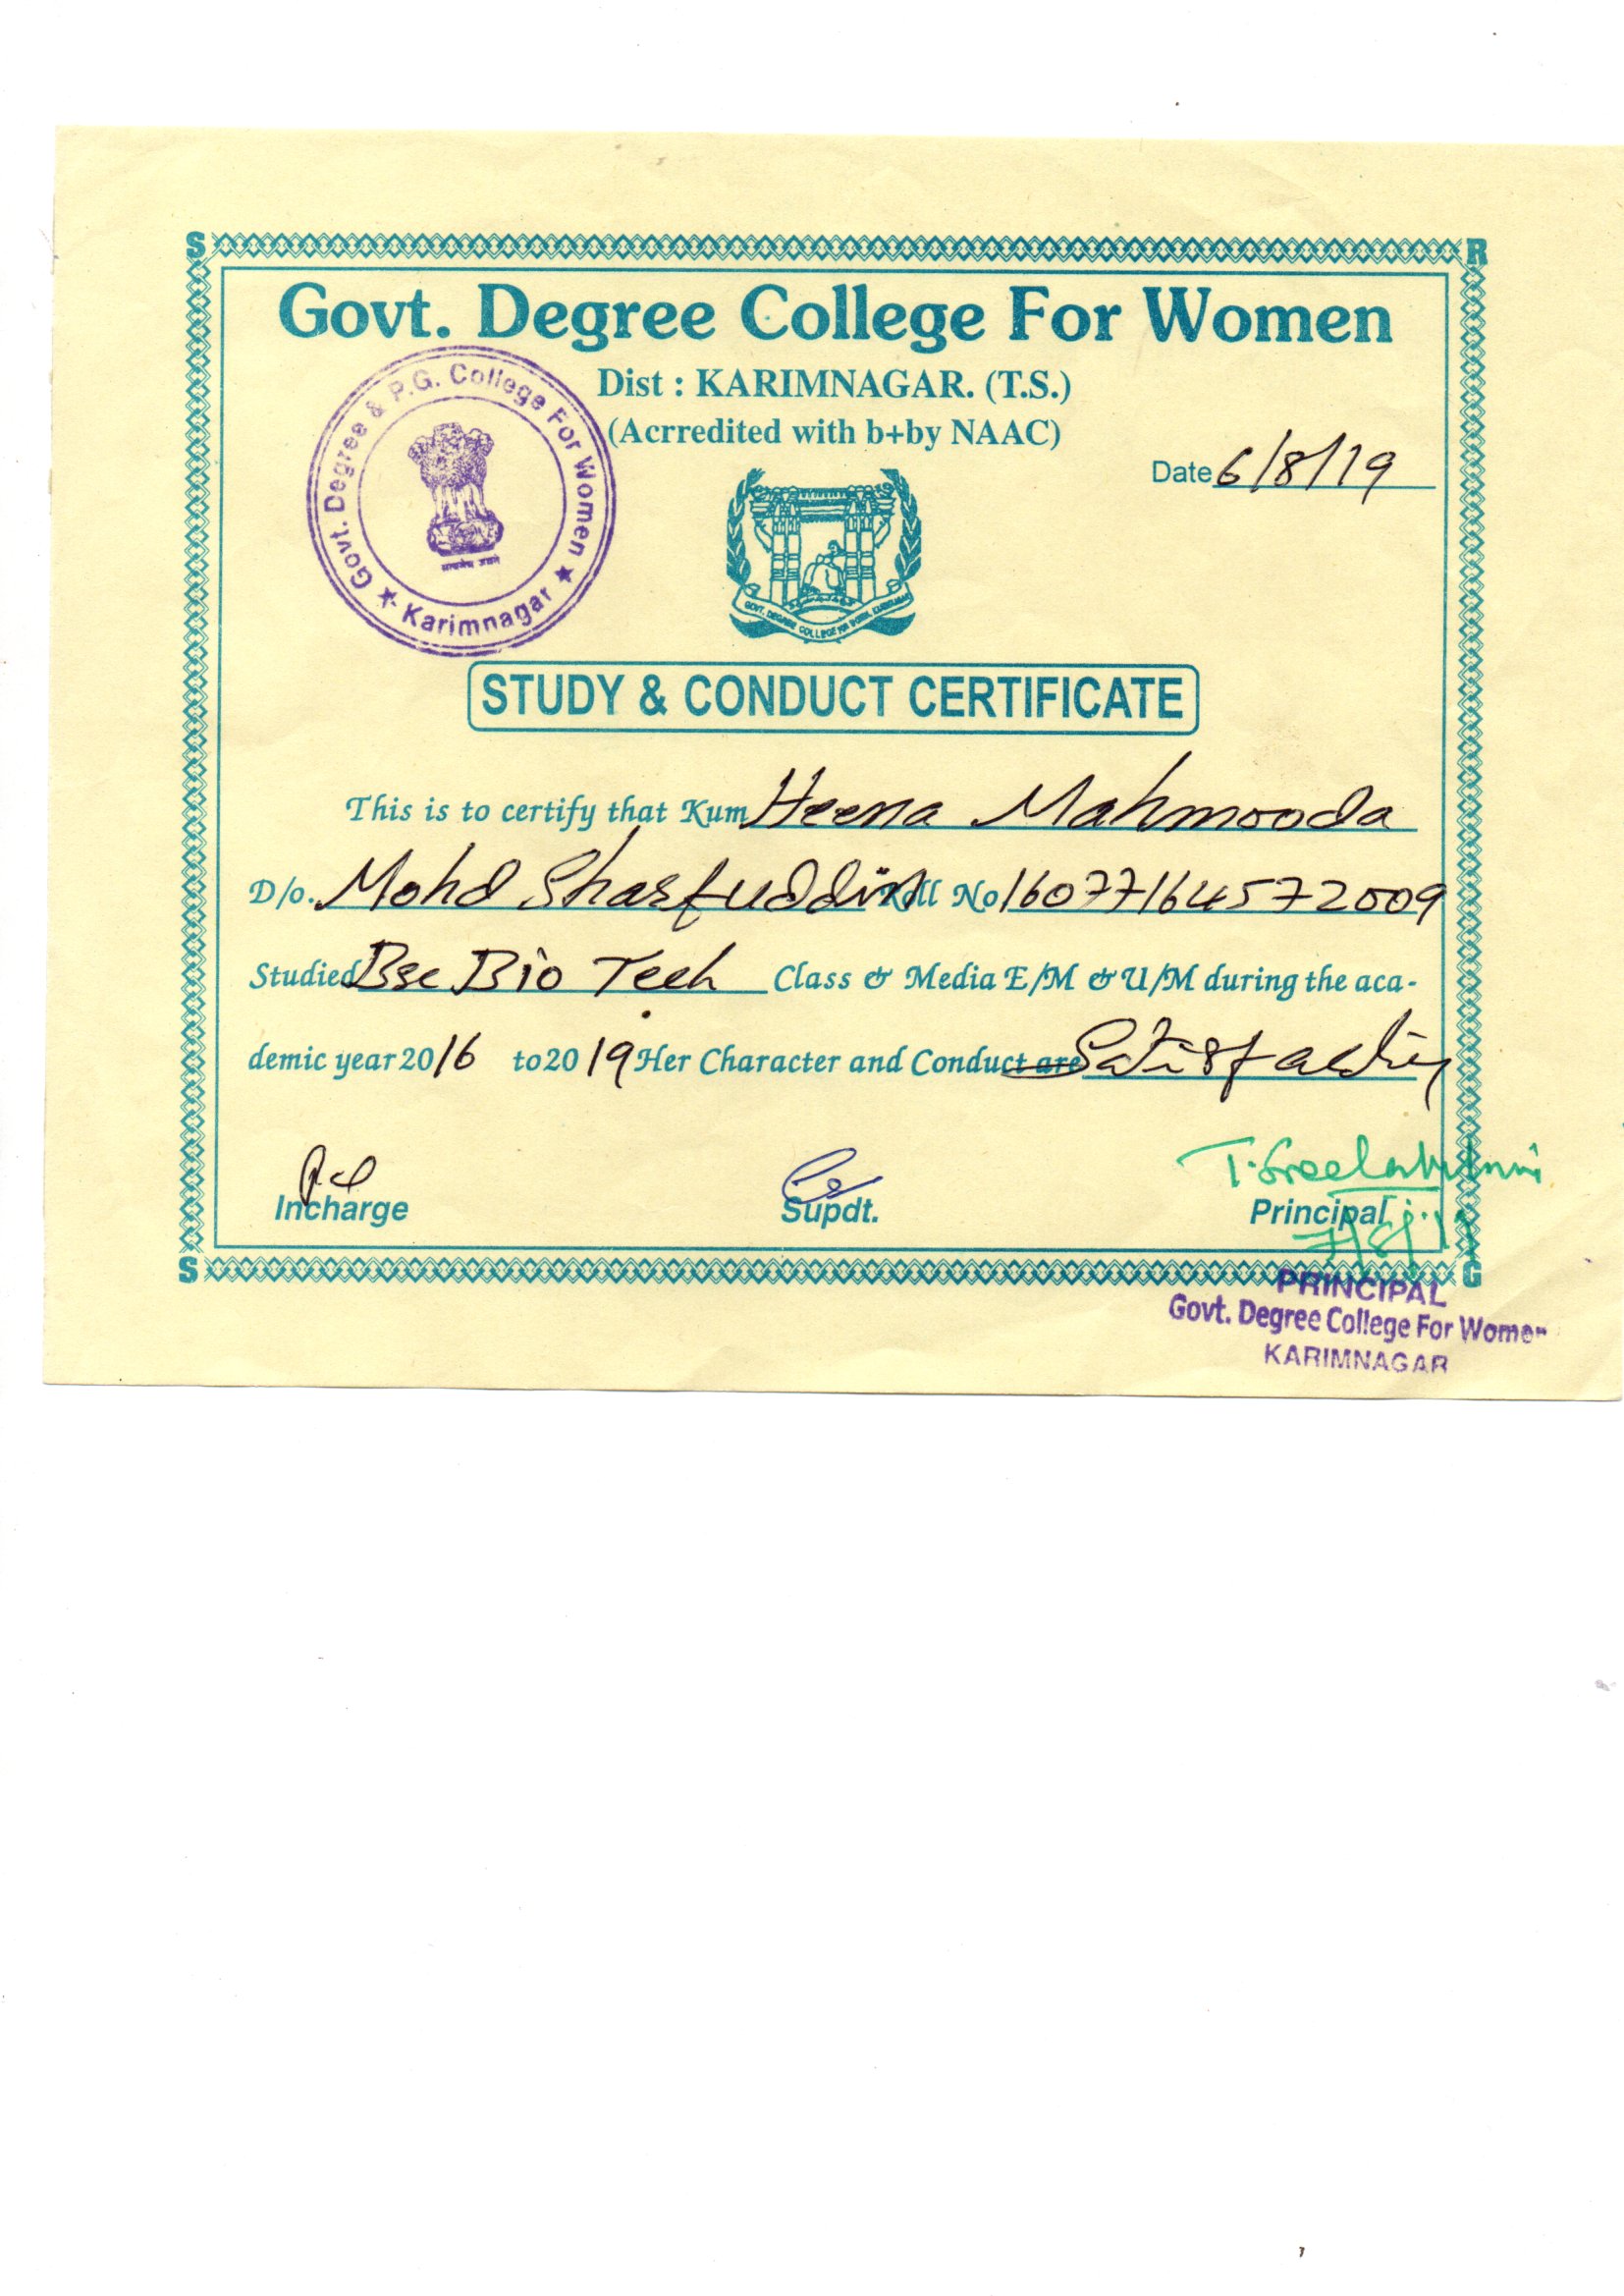 S R
Govt. Degree College For Women
Dist : KARIMNAGAR. (T.S.)
(Acrredited with b+by NAAC)
Govt. Degree & P.G. College For Women ★ Karimnagar ★
सत्यमेव जयते
Date 6/8/19
GOVT. DEGREE COLLEGE
STUDY & CONDUCT CERTIFICATE
This is to certify that Kum Heena Mahmooda
D/o. Mohd Sharfuddin Roll No 16077164572009
Studied Bsc Bio Tech Class & Media E/M & U/M during the aca-
demic year 2016 to 2019 Her Character and Conduct are Satisfactory
T. Sreelakshmi
Incharge Supdt. Principal
S G
PRINCIPAL
Govt. Degree College For Women
KARIMNAGAR